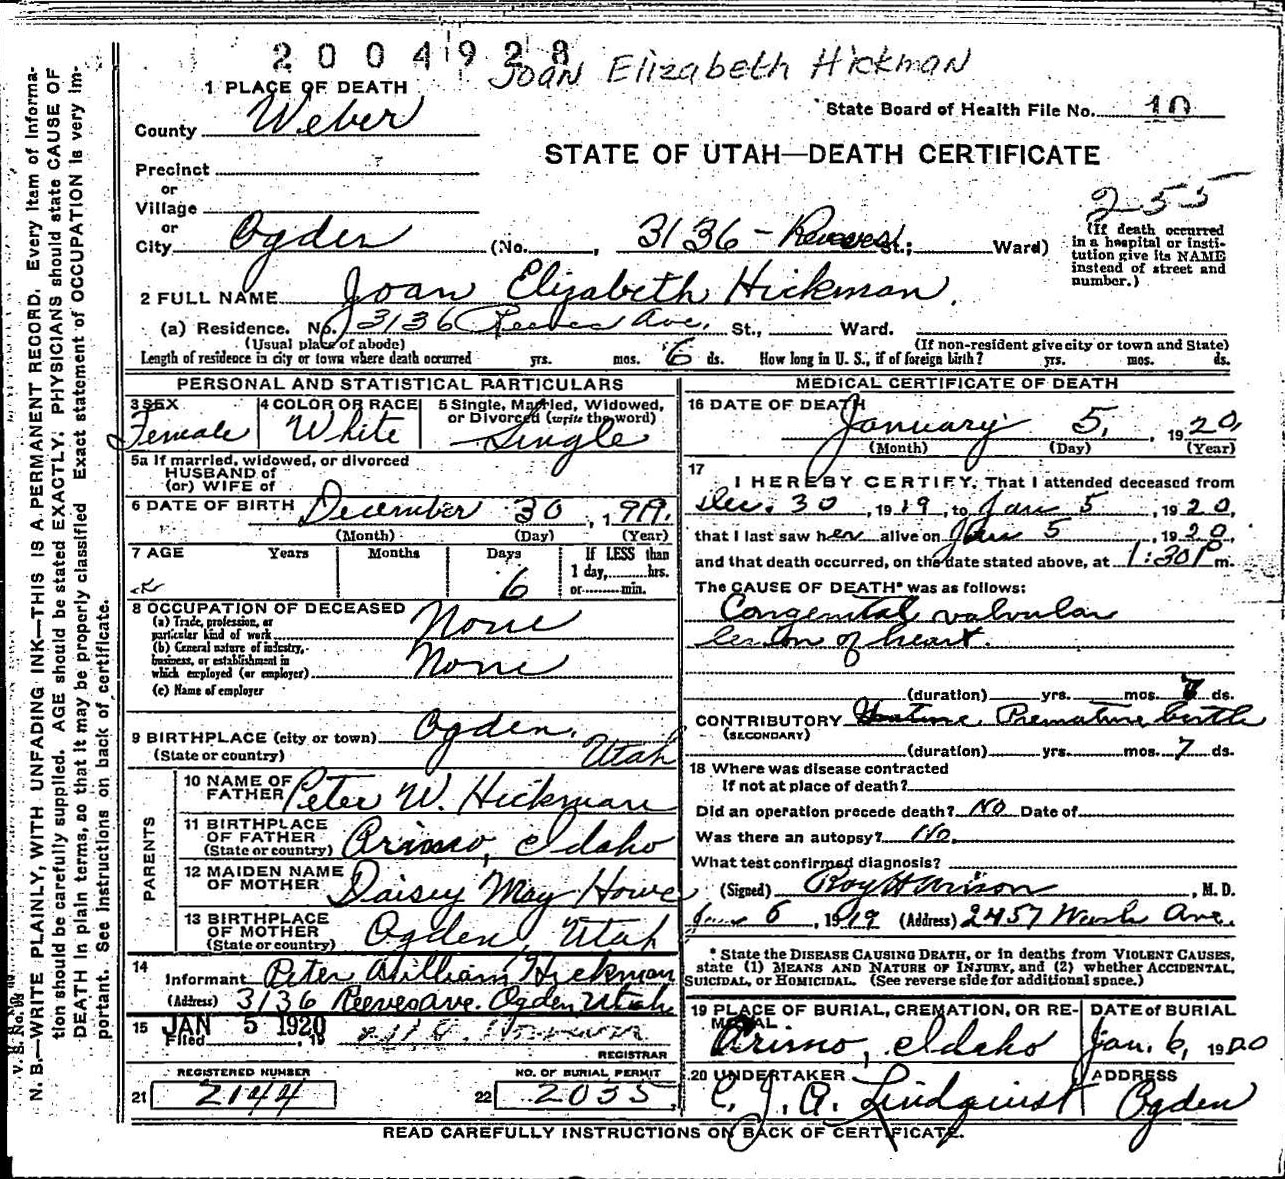 2004928
Joan Elizabeth Hickman
1 PLACE OF DEATH
State Board of Health File No. 10
County Weber
STATE OF UTAH—DEATH CERTIFICATE
Precinct
or
Village
or
City Ogden (No. , 3136 - Reeves St.; Ward)
255
(If death occurred in a hospital or insti-
tution give its NAME
instead of street and
number.)
2 FULL NAME Joan Elizabeth Hickman.
(a) Residence. No. 3136 Reeves Ave. St., Ward.
(Usual place of abode) (If non-resident give city or town and State)
Length of residence in city or town where death occurred yrs. mos. 6 ds. How long in U. S., if of foreign birth? yrs. mos. ds.
PERSONAL AND STATISTICAL PARTICULARS
3 SEX Female
4 COLOR OR RACE White
5 Single, Married, Widowed,
or Divorced (write the word)
Single
5a If married, widowed, or divorced
HUSBAND of
(or) WIFE of
6 DATE OF BIRTH December 30, 1919.
(Month) (Day) (Year)
7 AGE Years Months Days If LESS than
6 1 day, hrs.
or min.
8 OCCUPATION OF DECEASED
(a) Trade, profession, or
particular kind of work None
(b) General nature of industry,
business, or establishment in
which employed (or employer) None
(c) Name of employer
9 BIRTHPLACE (city or town) Ogden,
(State or country) Utah
PARENTS
10 NAME OF
FATHER Peter W. Hickman
11 BIRTHPLACE
OF FATHER
(State or country) Arimo, Idaho
12 MAIDEN NAME
OF MOTHER Daisey May Howe
13 BIRTHPLACE
OF MOTHER
(State or country) Ogden, Utah
14
Informant Peter William Hickman
(Address) 3136 Reeves ave. Ogden, Utah
15 JAN 5 1920
Filed , 19
REGISTRAR
REGISTERED NUMBER NO. OF BURIAL PERMIT
21 2144 22 2035
MEDICAL CERTIFICATE OF DEATH
16 DATE OF DEATH
January 5, 1920,
(Month) (Day) (Year)
17
I HEREBY CERTIFY, That I attended deceased from
Dec. 30, 1919, to Jan 5, 1920,
that I last saw her alive on Jan 5, 1920,
and that death occurred, on the date stated above, at 1:30 P m.
The CAUSE OF DEATH* was as follows:
Congenital valvular
lesion of heart.
(duration) yrs. mos. 7 ds.
CONTRIBUTORY Premature birth
(SECONDARY)
(duration) yrs. mos. 7 ds.
18 Where was disease contracted
If not at place of death?
Did an operation precede death? No Date of
Was there an autopsy? No.
What test confirmed diagnosis?
(Signed) , M. D.
Jan 6, 1919 (Address) 2457 Wash Ave.
* State the DISEASE CAUSING DEATH, or in deaths from VIOLENT CAUSES,
state (1) MEANS AND NATURE OF INJURY, and (2) whether ACCIDENTAL,
SUICIDAL, or HOMICIDAL. (See reverse side for additional space.)
19 PLACE OF BURIAL, CREMATION, OR RE-
MOVAL
Arimo, Idaho
DATE of BURIAL
Jan. 6, 1920
20 UNDERTAKER
C. J. A. Lindquist
ADDRESS
Ogden
READ CAREFULLY INSTRUCTIONS ON BACK OF CERTIFICATE.
N. B.—WRITE PLAINLY, WITH UNFADING INK—THIS IS A PERMANENT RECORD. Every item of informa-
tion should be carefully supplied. AGE should be stated EXACTLY. PHYSICIANS should state CAUSE OF
DEATH in plain terms, so that it may be properly classified Exact statement of OCCUPATION is very im-
portant. See instructions on back of certificate.